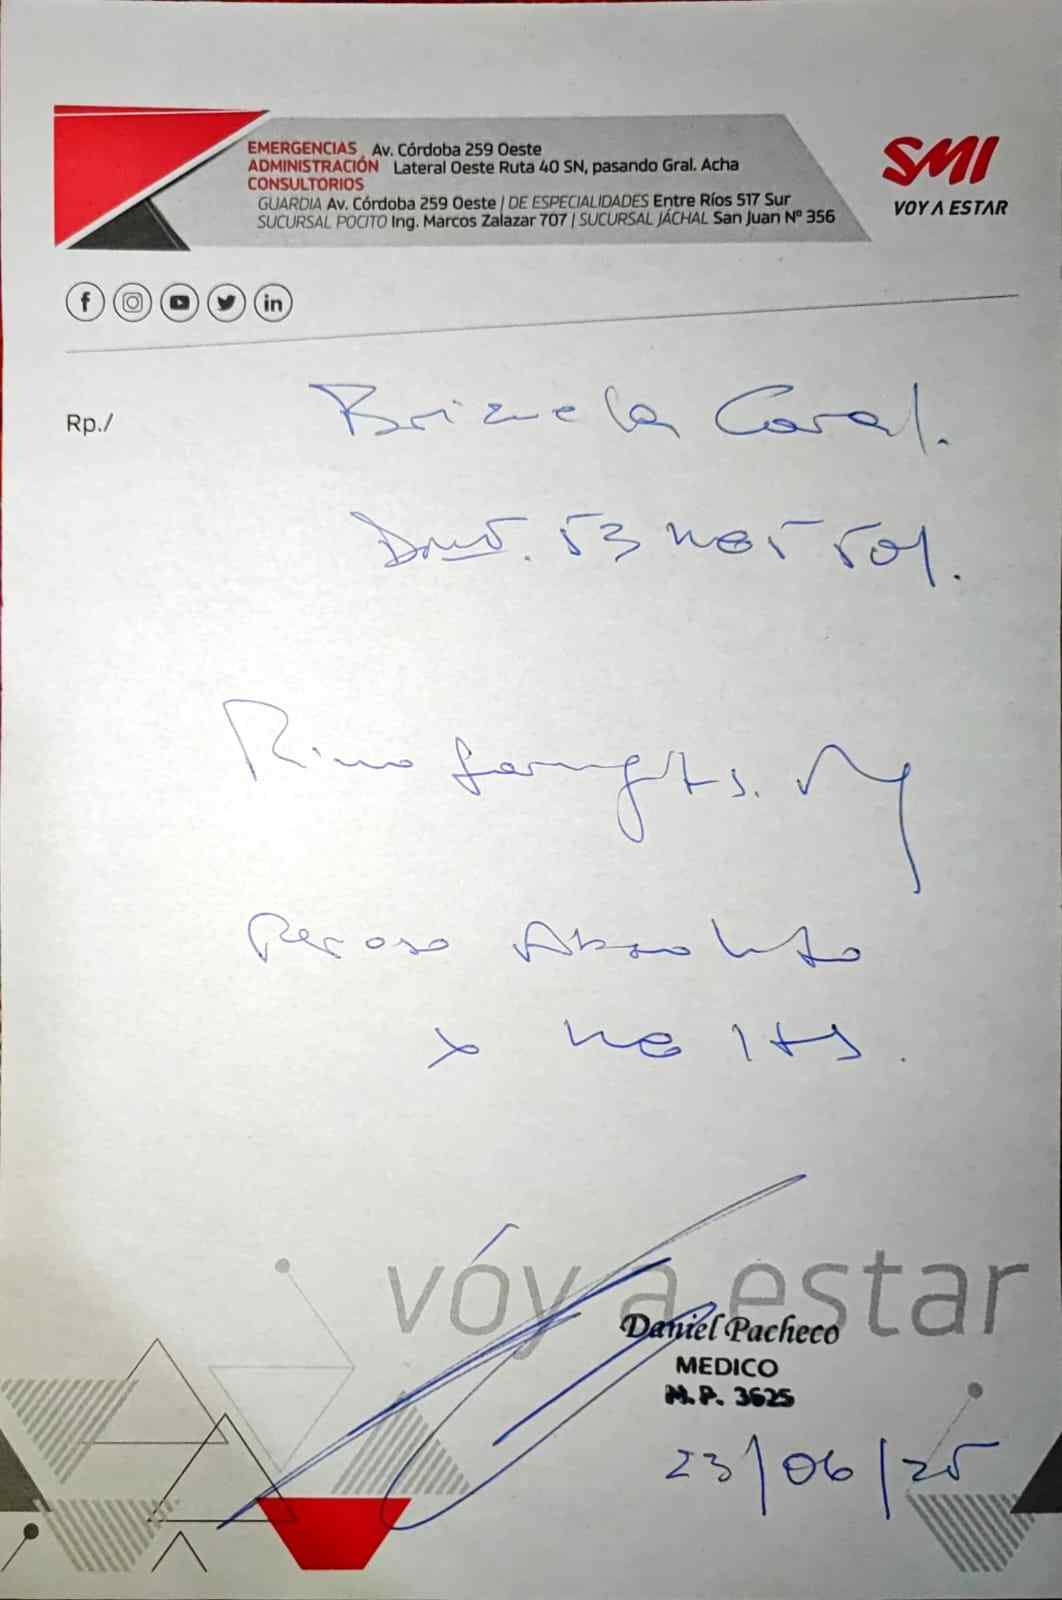 EMERGENCIAS Av. Córdoba 259 Oeste
ADMINISTRACIÓN Lateral Oeste Ruta 40 SN, pasando Gral. Acha
CONSULTORIOS
GUARDIA Av. Córdoba 259 Oeste | DE ESPECIALIDADES Entre Ríos 517 Sur
SUCURSAL POCITO Ing. Marcos Zalazar 707 | SUCURSAL JÁCHAL San Juan Nº 356
SMI
VOY A ESTAR
Rp./
Brizuela Coral.
53
Rinofaringitis.
Reposo Absoluto
x
vóy a estar
Daniel Pacheco
MEDICO
M.P. 3625
23/06/25